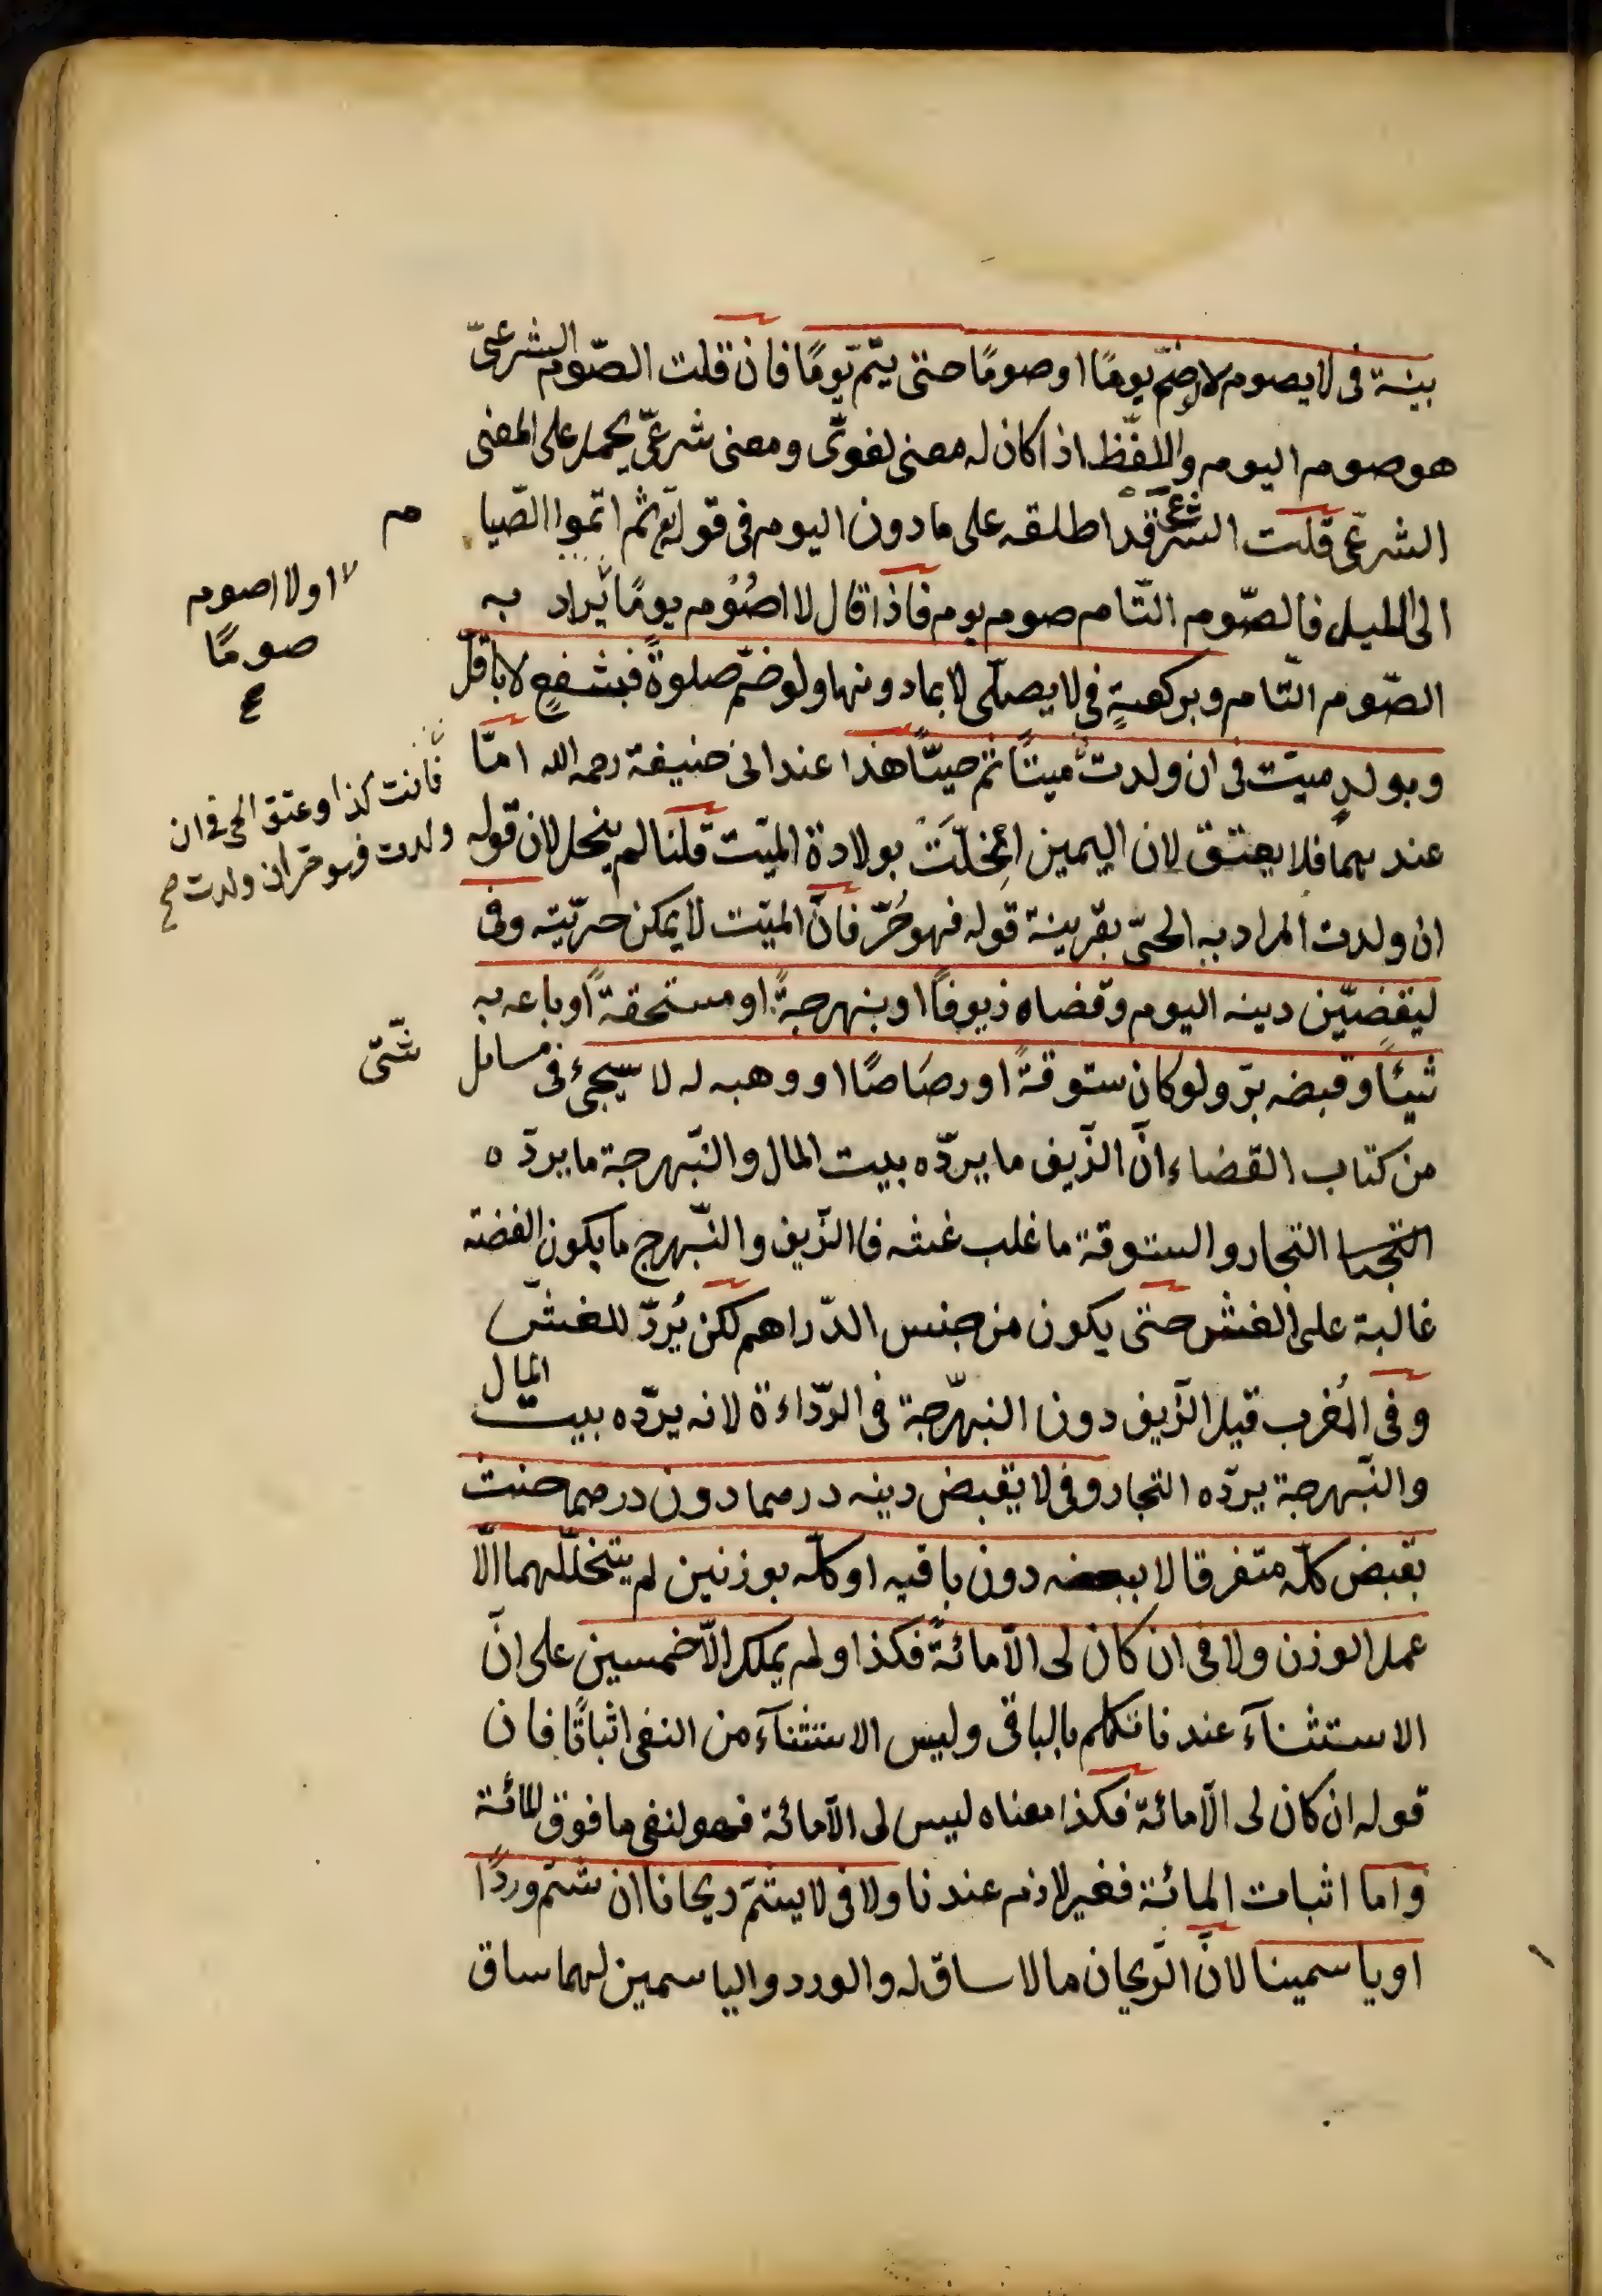 بنية فى لا يصوم لا ان ضمّ يومًا او صومًا حتى يتمّ يومًا فان قلت الصّوم الشرعىّ
هو صوم اليوم واللفظ اذا كان له معنى لغوىّ ومعنى شرعىّ يحمل على المعنى
الشرعى قلت الشرع قد اطلقه على ما دون اليوم فى قوله تع ثم اتموا الصّيا
م
الى الليل فالصّوم التّام صوم يوم فاذا قال لا اصُوُم يومًا يُراد به
او لا اصوم
صومًا
الصّوم التّام وبركعةٍ فى لا يصلّى لا بما دونها ولو ضمّ صلوةً فبشفعٍ لا باقلّ
وبولدٍ ميّت فى ان ولدت ميتًا ثم حيّاً هذا عند ابى حنيفة رحمه الله امّا
فانت كذا وعتق الحى فى ان
ولدت فهو حرّ ان ولدت
عندهما فلا يعتق لان اليمين انحلّت بولادة الميّت قلنا لم ينحل لان قوله
ان ولدت المراد به الحىّ بقرينة قوله فهو حُرّ فانّ الميّت لا يمكن حرّيته وفى
ليقضِيّن دينه اليوم وقضاه زيوفًا او بنهرجةً او مستحقةً او باعه به
شيئًا وقبضه برّ ولو كان ستوقةً او رصَاصًا او وهبه له لا سيجىء فى مسائل
شتّى
من كتاب القضاء انّ الزّيف ما يردّه بيت المال والنّبهرجة ما يردّه
التجا التجار والستوقة ما غلب غشه فالزّيف والنّبهرج ما يكون الفضة
غالبة على الغش حتى يكون من جنس الدّراهم لكن يُردّ للغشّ
وفى المُغرب قيل الزّيف دون النبهرّجة فى الرّداءة لانه يردّه بيت المال
والنّبهرجة يردّه التجار وفى لا يقبض دينه درهما دون درهم حنث
بقبض كلّه متفرقا لا ببعضه دون باقيه او كلّه بوزنين لم يتخلّلهما الّا
عمل الوزن ولا فى ان كان لى الّا مائةً فكذا ولم يملك الّا خمسين على انّ
الاستثنآء عندنا تكلم بالباقى وليس الاستثنآء من النفى اثباتًا فان
قوله ان كان لى الّا مائة فكذا معناه ليس لى الّا مائة فهو لنفى ما فوق المائة
واما اثبات المائة فغير لازم عندنا ولا فى لا يشمّ ريحانا ان شمّ وردًا
او ياسمينا لانّ الرّيحان ما لا ساق له والورد والياسمين لهما ساق